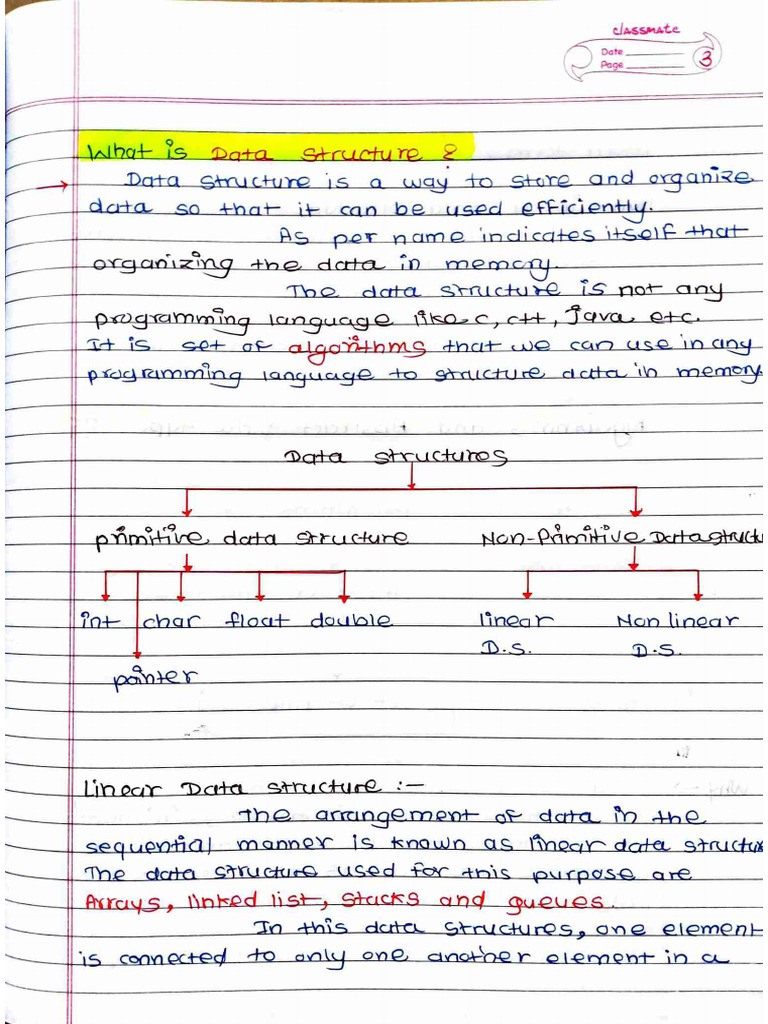 classmate
Date
Page 3
What is Data Structure ?
→ Data structure is a way to store and organize
data so that it can be used efficiently.
As per name indicates itself that
organizing the data in memory.
The data structure is not any
programming language like c, c++, java etc.
It is set of algorithms that we can use in any
programming language to structure data in memory.
Data structures
primitive data structure Non-Primitive Data struct
int char float double linear Non linear
D.S. D.S.
pointer
Linear Data structure :-
The arrangement of data in the
sequential manner is known as linear data structu
The data structure used for this purpose are
Arrays, linked list, stacks and queues.
In this data structures, one element
is connected to only one another element in a